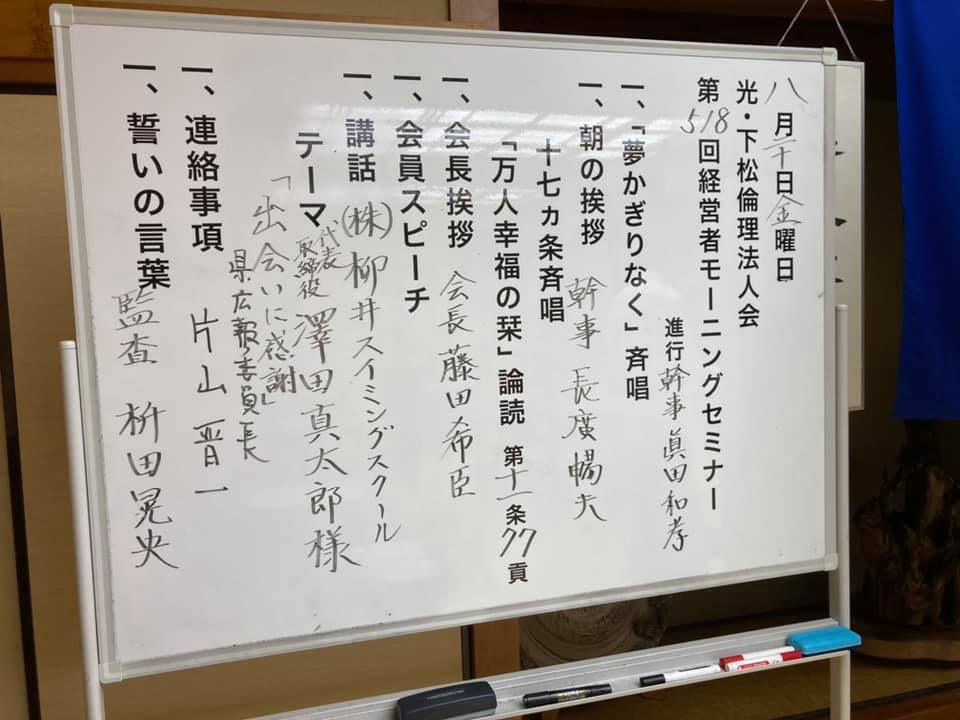 八月二十日金曜日
光・下松倫理法人会
第518回経営者モーニングセミナー
進行幹事 眞田和孝
一、「夢かぎりなく」斉唱
一、朝の挨拶 幹事 長廣暢夫
十七ヵ条斉唱
「万人幸福の栞」論読 第十一条77貢
一、会長挨拶 会長 藤田希臣
一、会員スピーチ
一、講話 (株)柳井スイミングスクール
代表取締役 澤田真太郎様
テーマ
「出会いに感謝」
県広報委員長
一、連絡事項 片山晋一
一、誓いの言葉 監査 枡田晃央